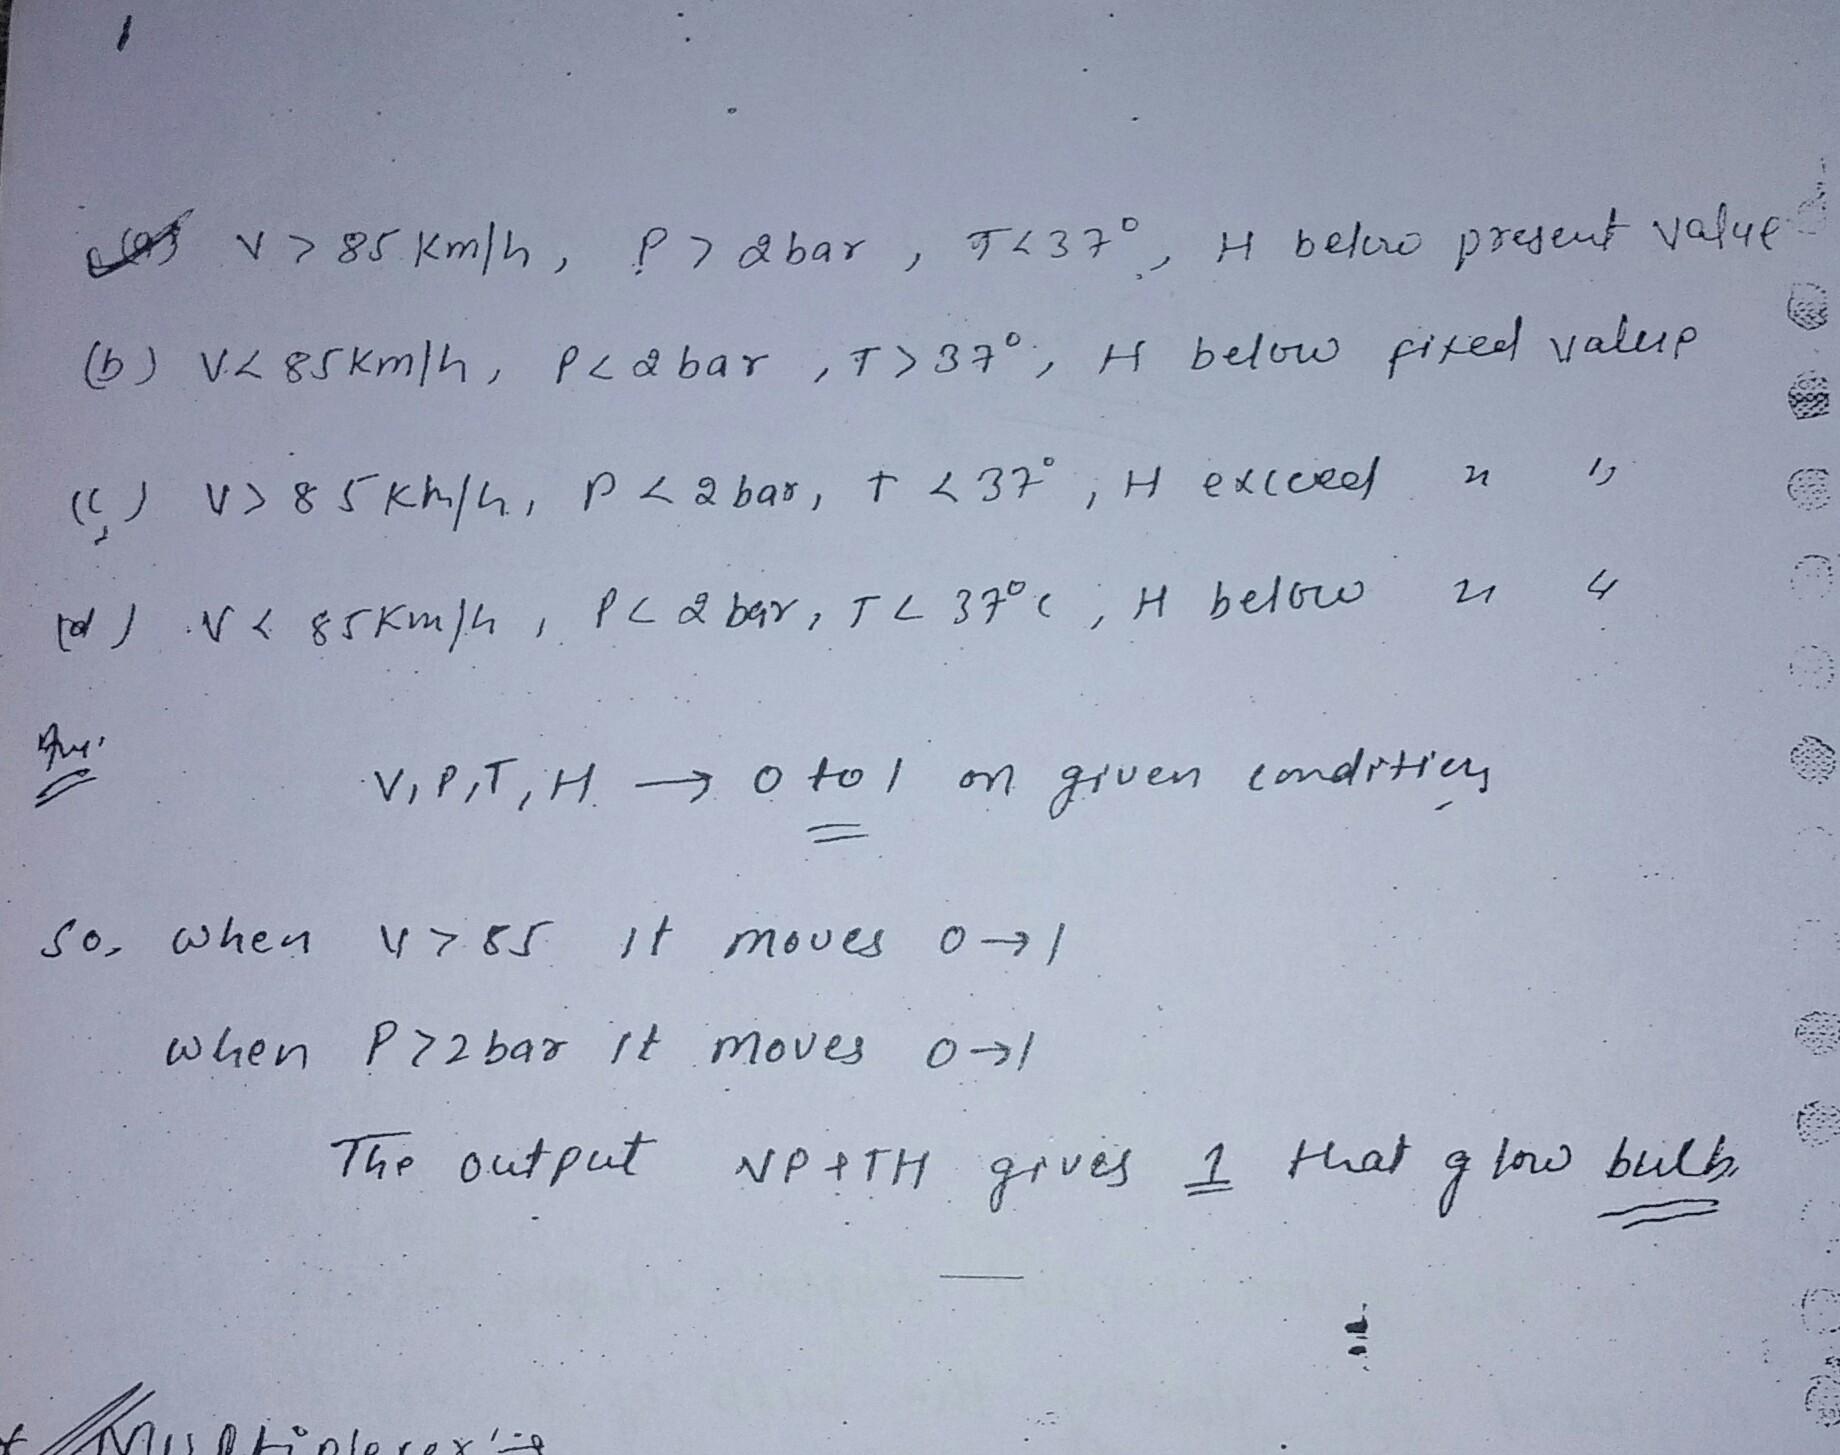 (a) V > 85 Km/h, P > 2bar, T<37°, H below present value
(b) V< 85Km/h, P<2bar, T>37°, H below fixed value
(c) V> 85 Km/h, P<2bar, T<37°, H exceed " "
(d) V< 85Km/h, P<2bar, T<37°c, H below " "
Ans.
V,P,T,H → 0 to 1 on given condition
So, when V>85 it moves 0→1
when P>2bar it moves 0→1
The output VP+TH gives 1 that glow bulb
Multiplexer's